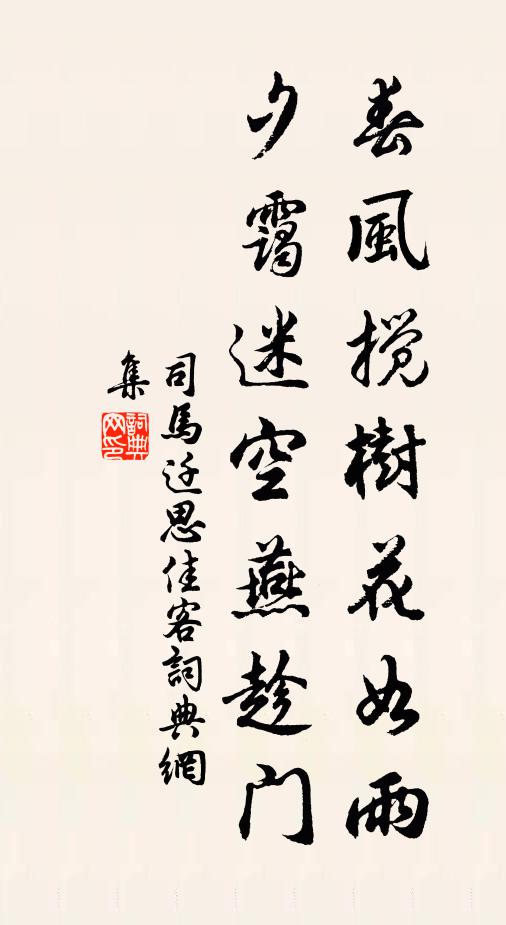 春風攪樹花如雨
夕靄迷空燕趁门
司馬迁思佳客詞典網
集
詞典網印